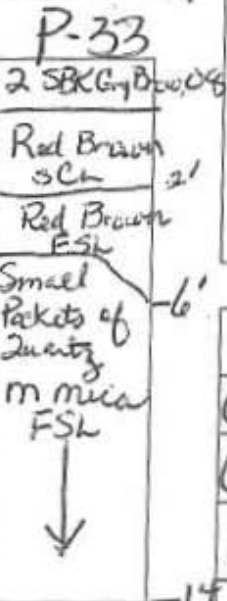 P-33
2 SBK Gry Brown
Red Brown
SCL
2'
Red Brown
FSL
6'
Small
Pockets of
Quartz
m mica
FSL
14